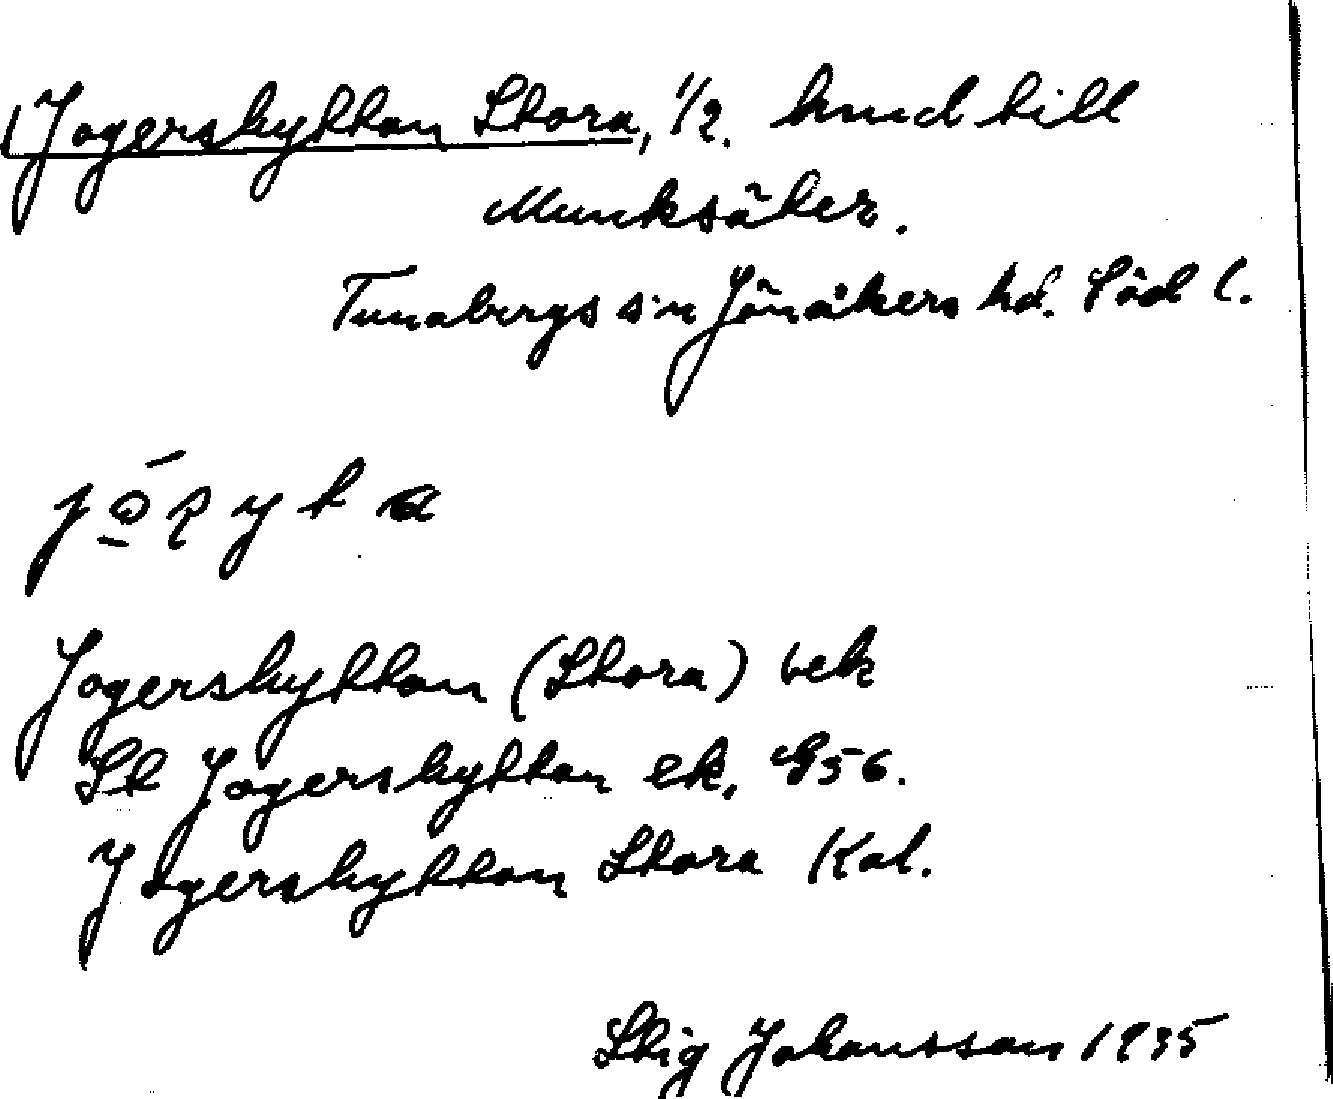 Jogershyttan Stora, 1/2. hmd till
Munksåker.
Tunabergs sn Jönåkers hd. Söd l.
Jogershyttan (Stora) bek
St Jogershyttan ek, G56.
Jogershyttan Stora Kal.
Stig Johansson 1935